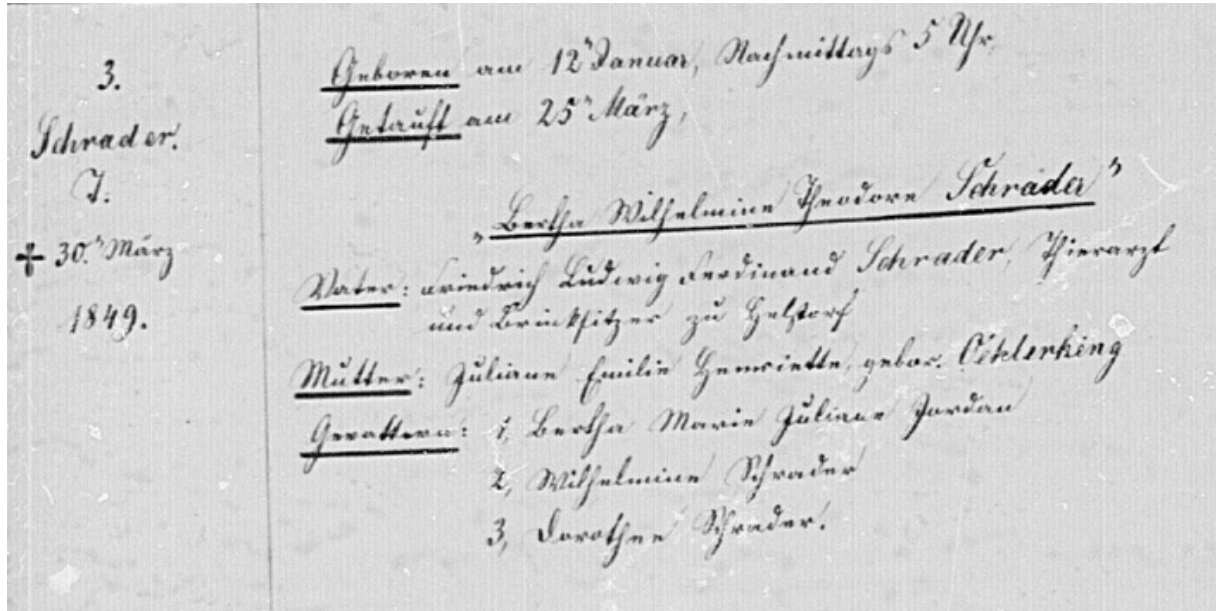 3.
Schrader.
T.
† 30.n März
1849.
Geboren am 12n Januar, Nachmittags 5 Uhr,
Getauft am 25n März,
„Bertha Wilhelmine Theodore Schrader"
Vater: Friedrich Ludwig Ferdinand Schrader, Thierarzt
und Brinksitzer zu Helstorf
Mutter: Juliane Emilie Henriette, gebor. Oehlerking
Gevattern: 1, Bertha Marie Juliane Jordan
2, Wilhelmine Schrader
3, Dorothee Schrader.